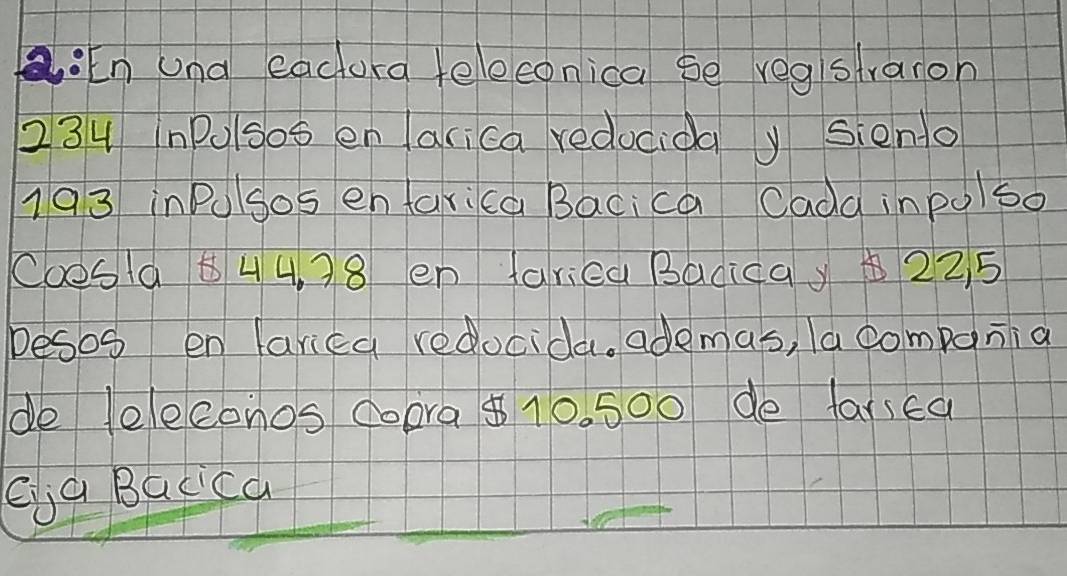 2: En una eactura teleconica se registraron
234 inpulsos en tarica reducida y siento
193 inpulsos en tarica Bacica Cada inpulso
Coesta $ 44,78 en tarica Bacica y $ 22,5
pesos en tarica reducida. ademas, la compañia
de teleconos cobra $ 10.500 de tarica
cija Bacica